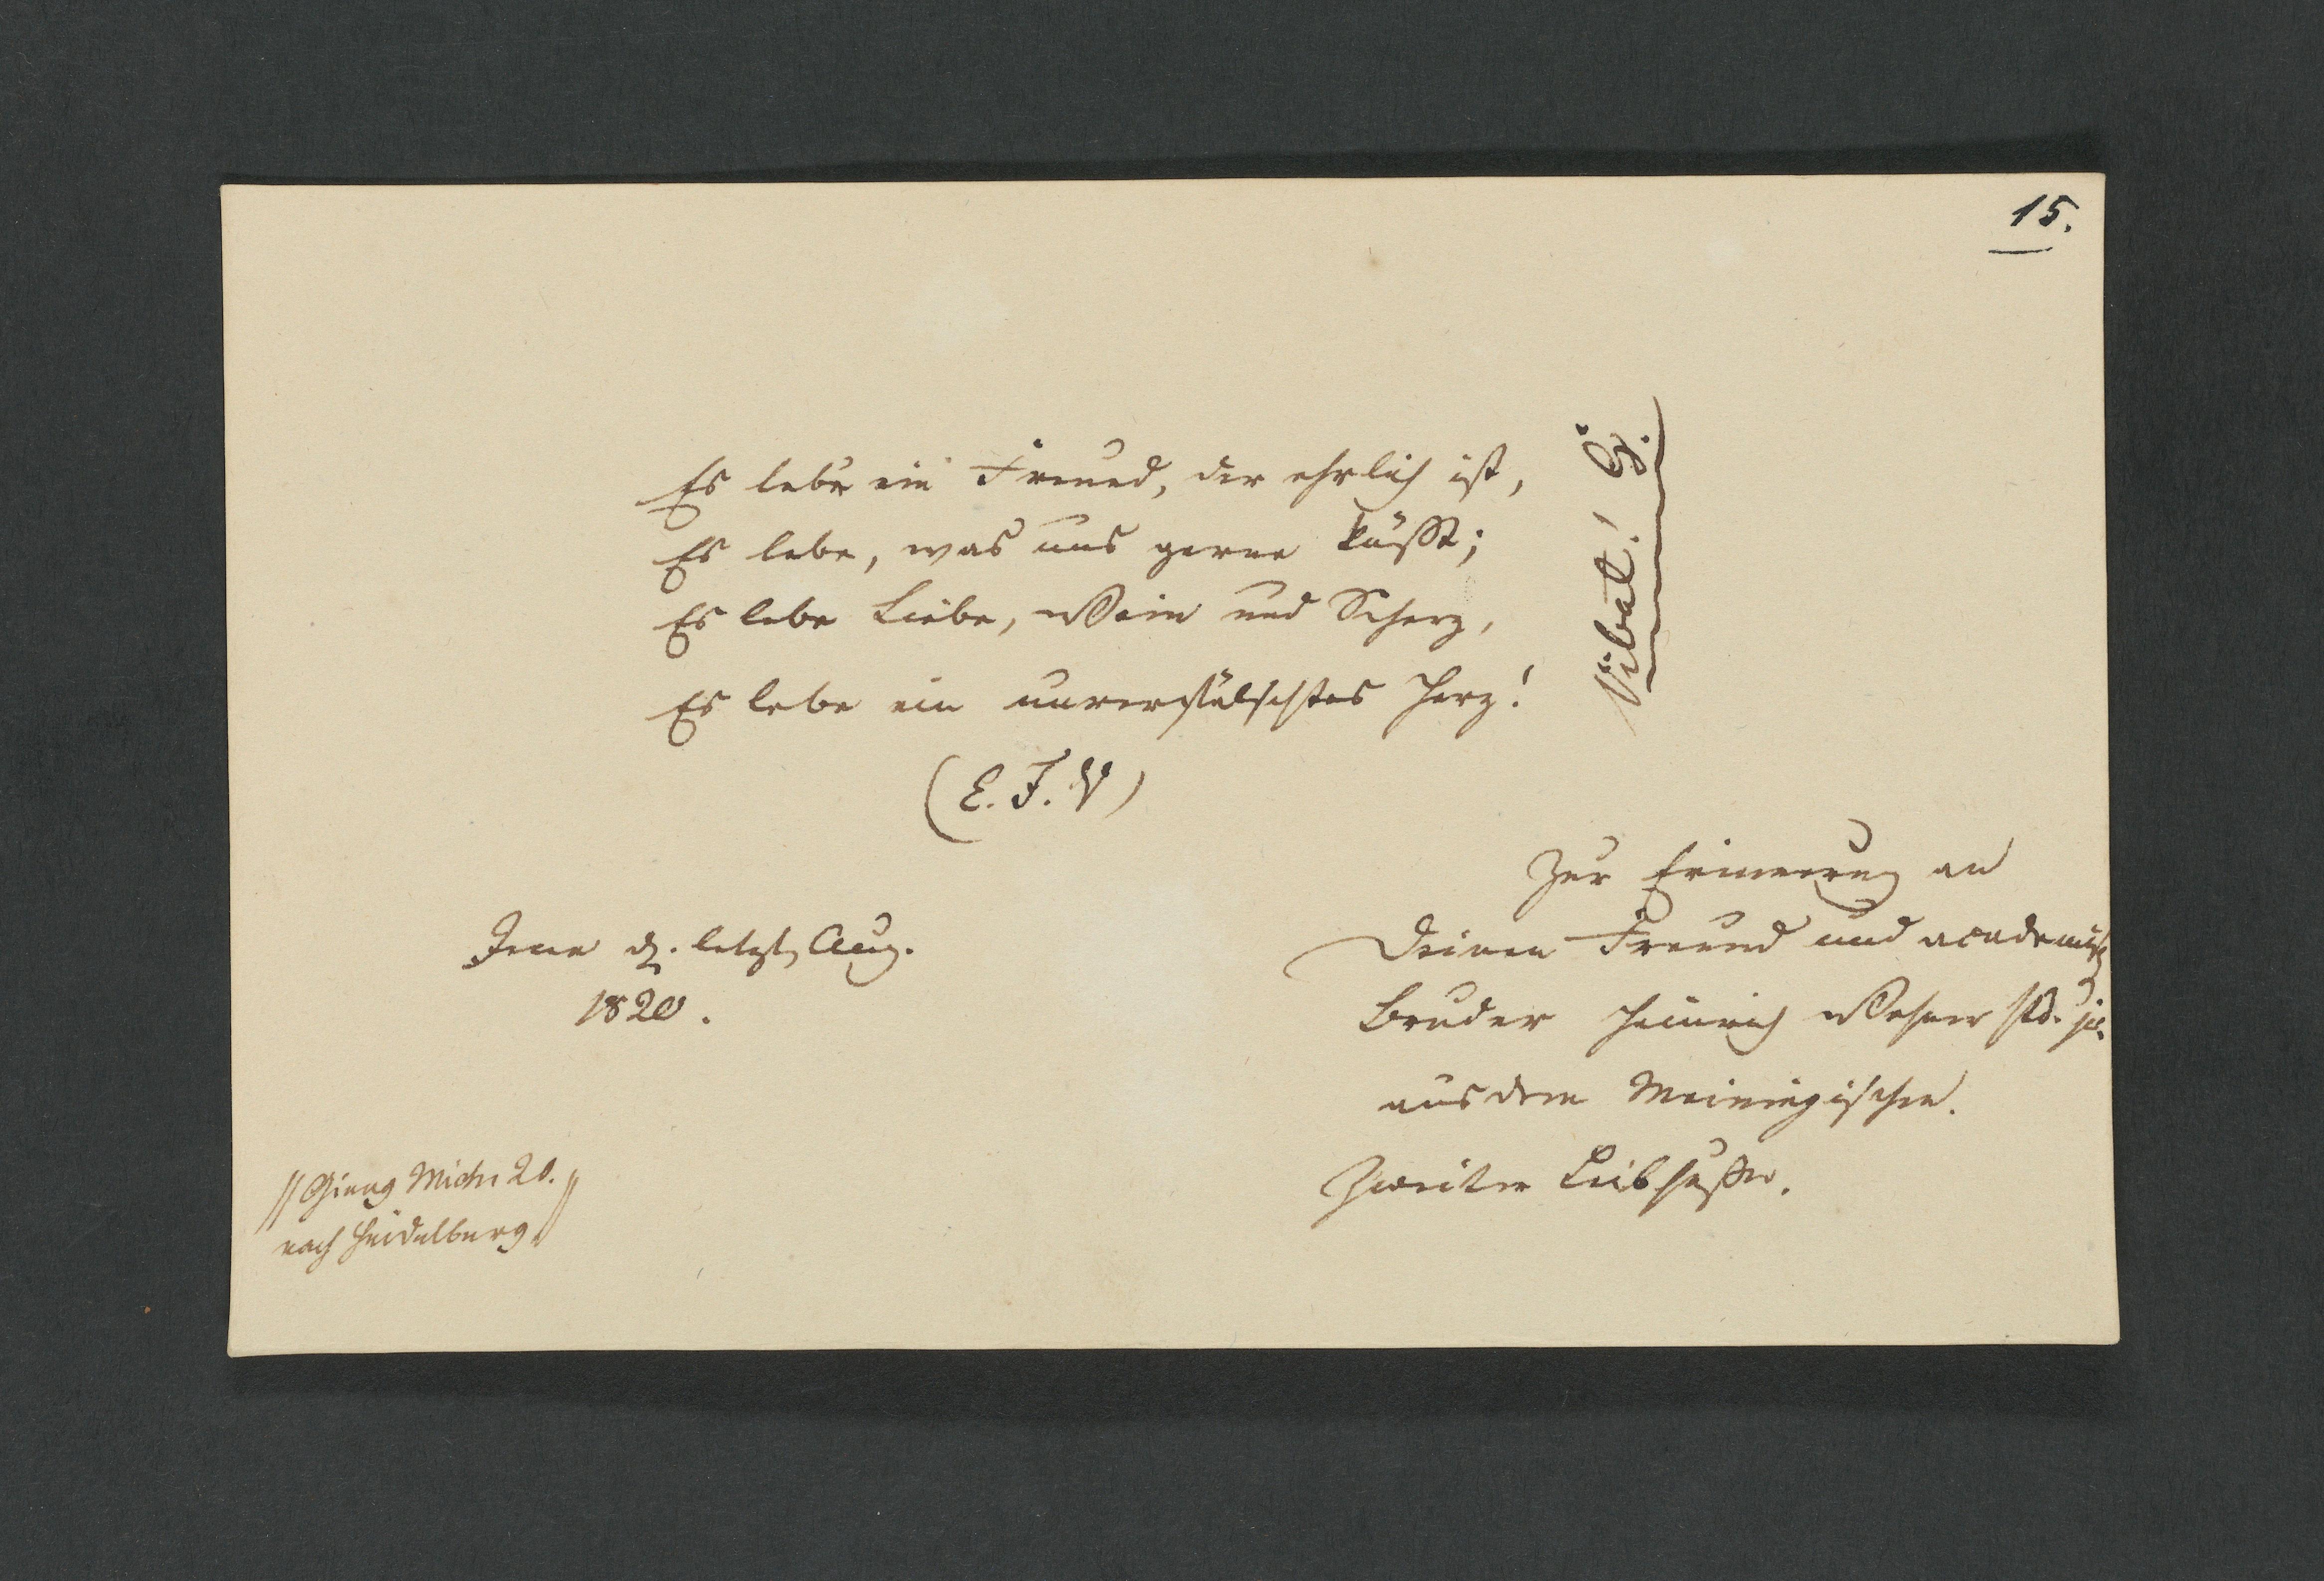 15.
Es lebe ein Freund, der ehrlich ist,
Es lebe, was uns gerne küsst;
Es lebe Liebe, Wein und Scherz,
Es lebe ein unverfälschtes Herz!
Vivat!
(E. F. V)
Jena d. letzt. Aug.
1820.
Zur Erinnerung an
Deinen Freund und academisch
Bruder Heinrich
aus dem Meiningischen.
Zweiter
// Gieng Mich. 20. //
nach Heidelberg